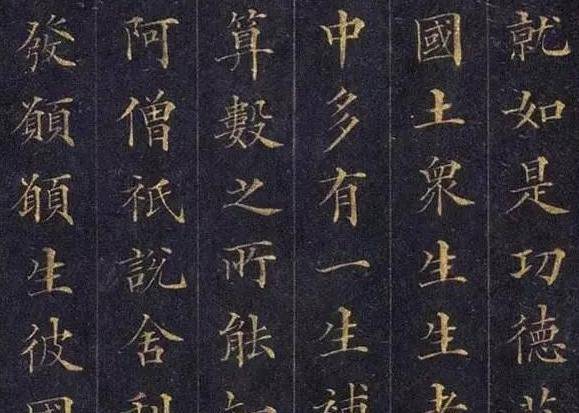 就如是功德莊
國土衆生生者
中多有一生補
算數之所能知
阿僧祇說舍利
發願願生彼國